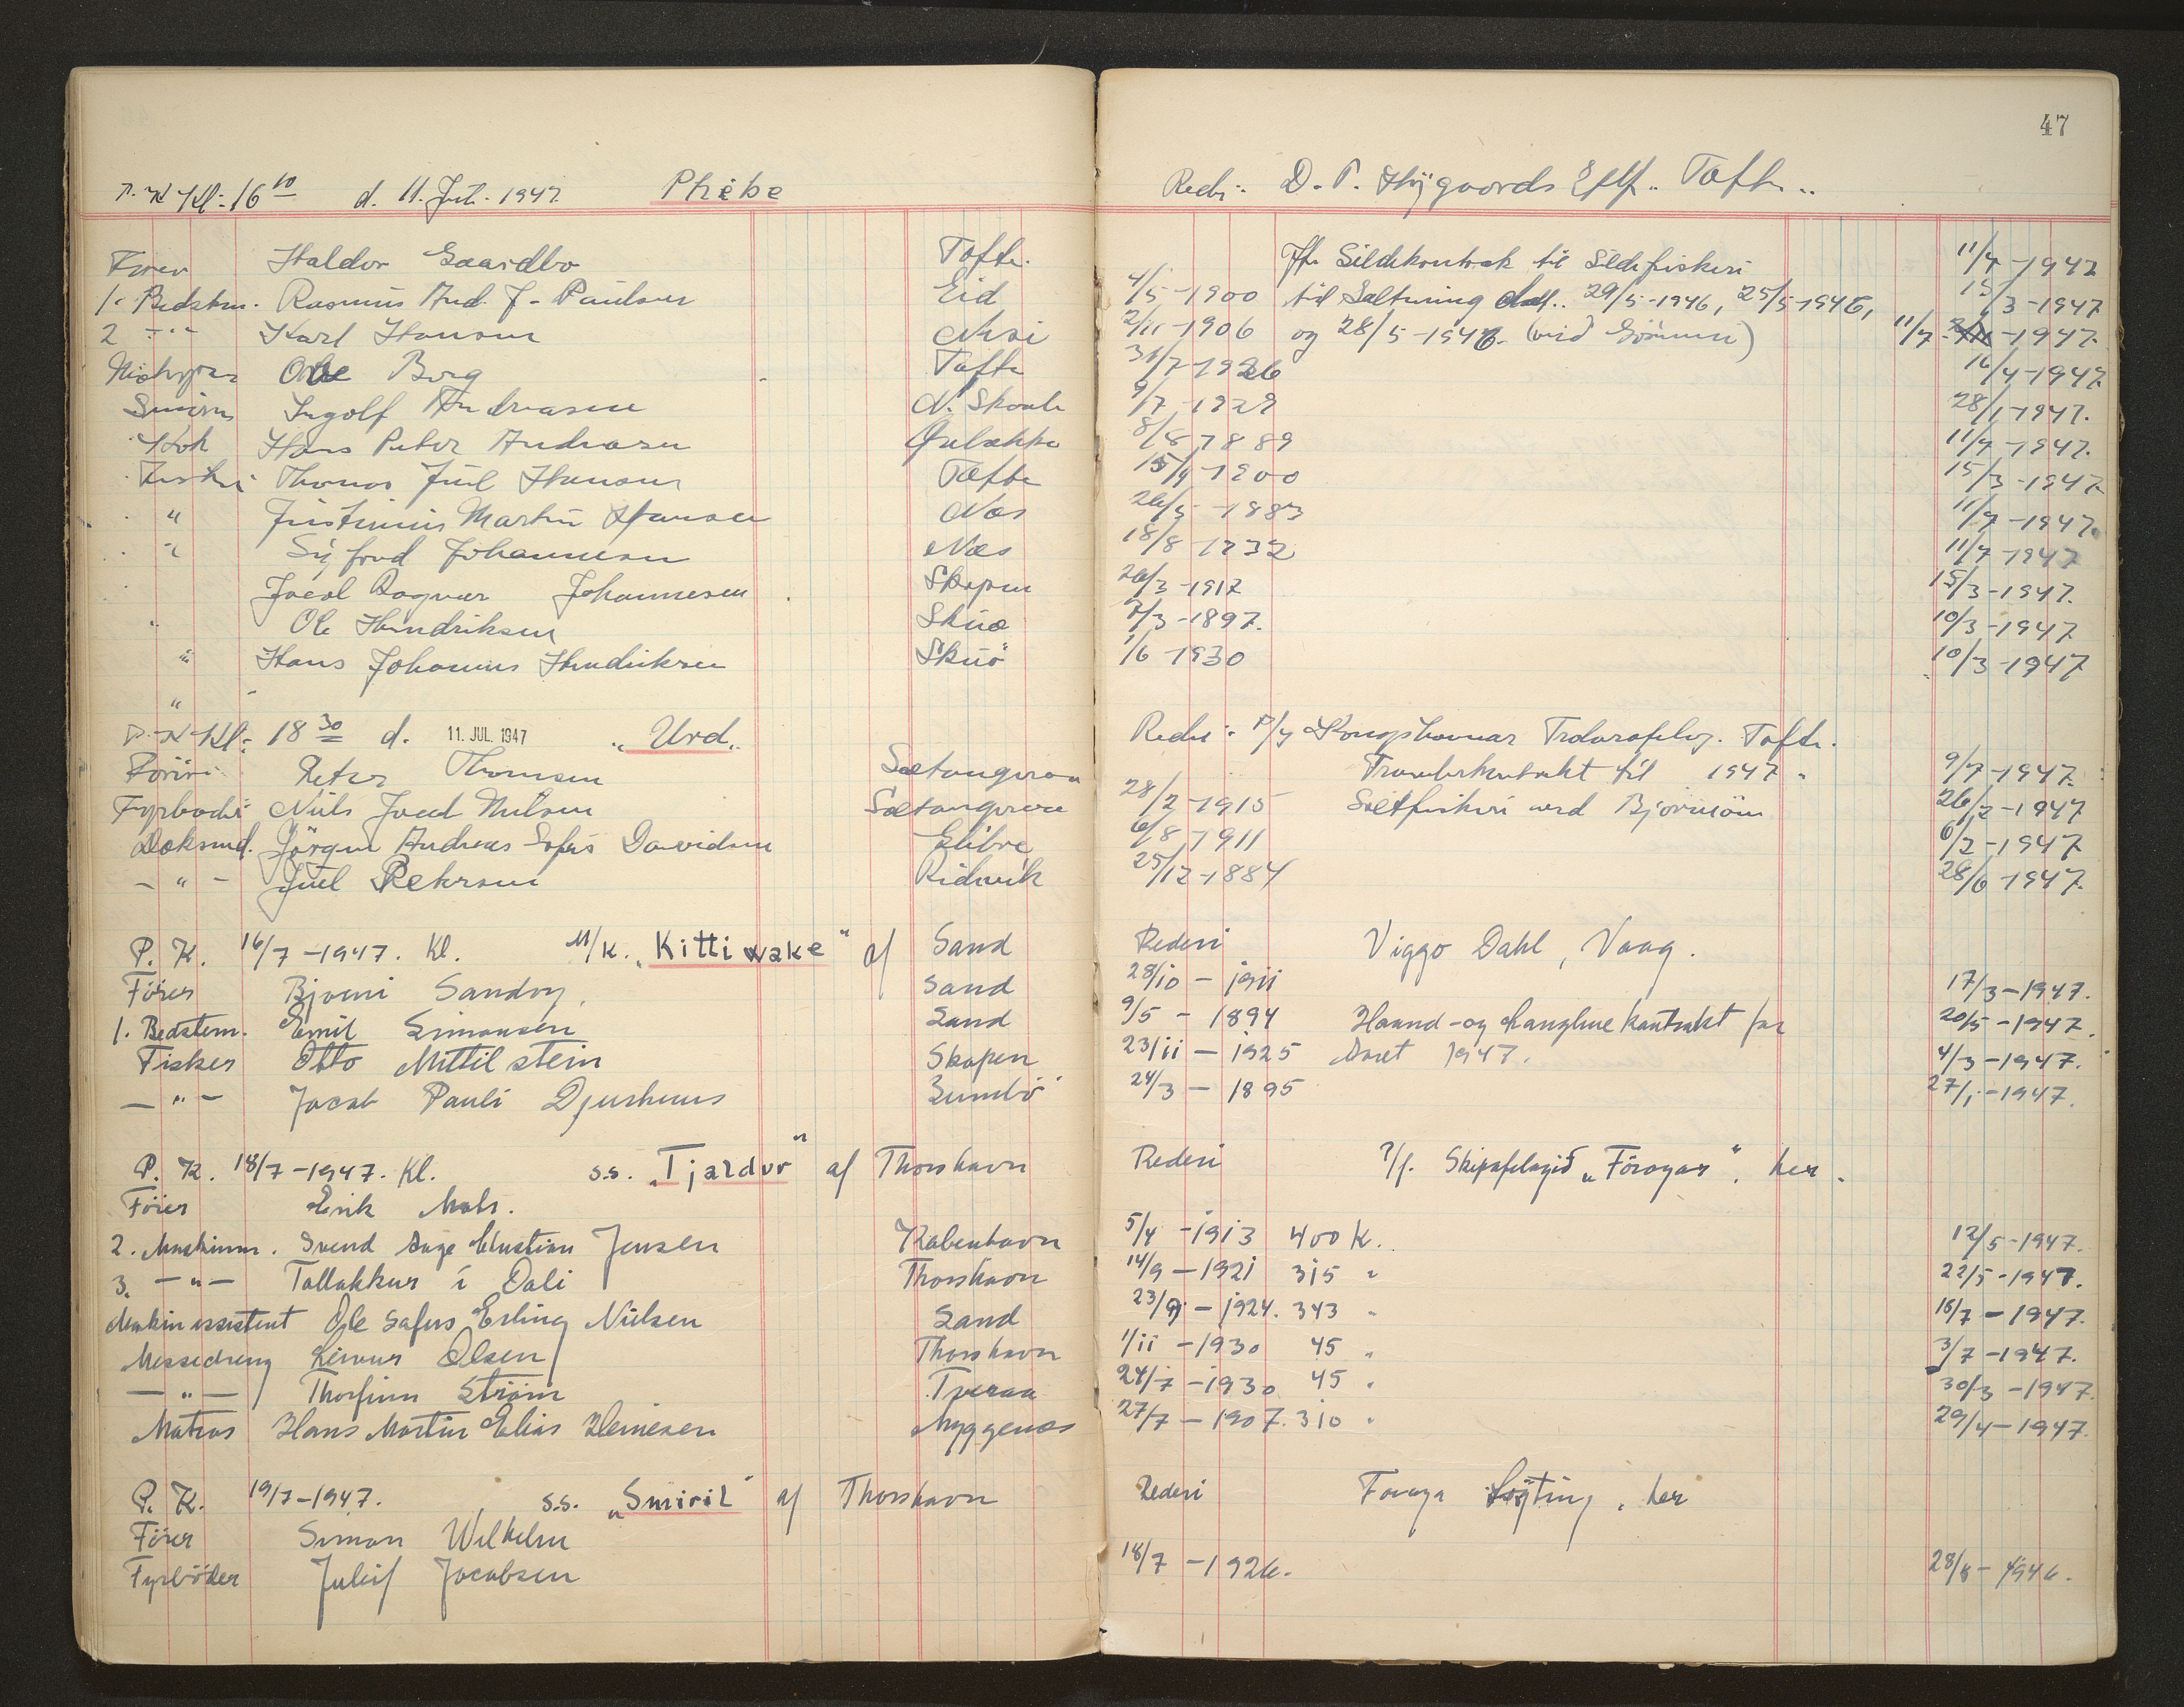 47
P. K Kl: 16 10 d. 11. Juli. 1947 Phebe Rederi: D. P. Höjgaards Eftf. Tofte..
Förer Haldor Gaardbo Tofte. Jfr Sildekontrakt til Sildefiskeri 11/7-1947
1. Bedstm. Rasmus And. J. Paulsen Eid 4/5-1900 til Saltning dat. 29/5-1946, 25/5-1946, 15/3-1947
2 -"- Karl Hansen 2/11-1906 og 28/5-1946. 11/7-1947.
Ole Borg Tofte 31/7-1926 16/4-1947
Ingolf Andreasen N. Skaale 9/7-1929 28/1-1947.
Kok Hans Peter Andreasen 8/8-1889 11/7-1947.
Fisker Thomas Juul Hansen Tofte 15/9-1900 15/3-1947
" Justinus Martin Hansen Næs 26/5-1883 11/7-1947.
" Sigfred Johannesen Næs 18/8-1932 11/7-1947
Jacob Ragnar Johannesen Skopen 26/3-1917 15/3-1947.
" Ole Hendriksen Skuø 7/3-1897. 10/3-1947
" Hans Johannes Hendriksen Skuö 1/6-1930 10/3-1947
"
P. K Kl: 18 30 d. 11. JUL. 1947 "Urd" Rederi: P/f Kongshavnar Trolarafelag. Tofte.
Peter Thomsen Trawlerkontrakt til 1947. 9/7-1947.
Fyrbøder Niels Jacob Nielsen 28/2-1915 Saltfiskeri ved Bjørnöen 26/2-1947
Dæksmd. Jörgen Andreas Sofus Davidsen Elibre 6/8-1911 6/2-1947
-"- Juel Petersen Ridevik 25/12-1884 28/6-1947.
P. K. 16/7-1947. Kl. M/K. "Kittiwake" af Sand Rederi Viggo Dahl, Vaag.
Förer Bjarni Sandoy, Sand 28/10-1911 17/3-1947.
1. Bedstem. Emil Simonsen Sand 9/5-1894 Haand-og Langlinekontrakt for 20/5-1947.
Fisker Otto Mittilstein Skopen 23/11-1925 Aaret 1947. 4/3-1947.
-"- Jacob Pauli Djurhuus Sumbö 24/3-1895 27/1-1947.
P. K. 18/7-1947. Kl. s.s. "Tjaldur" af Thorshavn Rederi P/f. Skipafelagið "Föroyar", her.
Förer Erik Mohr.
2. Maskinm. Svend Aage Christian Jensen København 5/4-1913 400 K. 12/5-1947.
3. -"- Tollakkur i Dali Thorshavn 14/9-1921 315 " 22/5-1947.
Maskinassistent Ole Sofus Erling Nielsen Sand 23/9-1924. 343 " 16/7-1947.
Messedreng Olsen Thorshavn 1/11-1930 45 " 3/7-1947.
-"- Thorfinn Ström Tveraa 24/7-1930 45 " 30/3-1947.
Matros Hans Martin Elias Heinesen Myggenæs 27/7-1907. 310 " 29/4-1947.
P. K. 19/7-1947. s.s. "Smiril" af Thorshavn Rederi Föroya Lögting, her
Förer Simon Wilhelm
Fyrböder Juleif Jacobsen 18/7-1926. 28/8-1946.